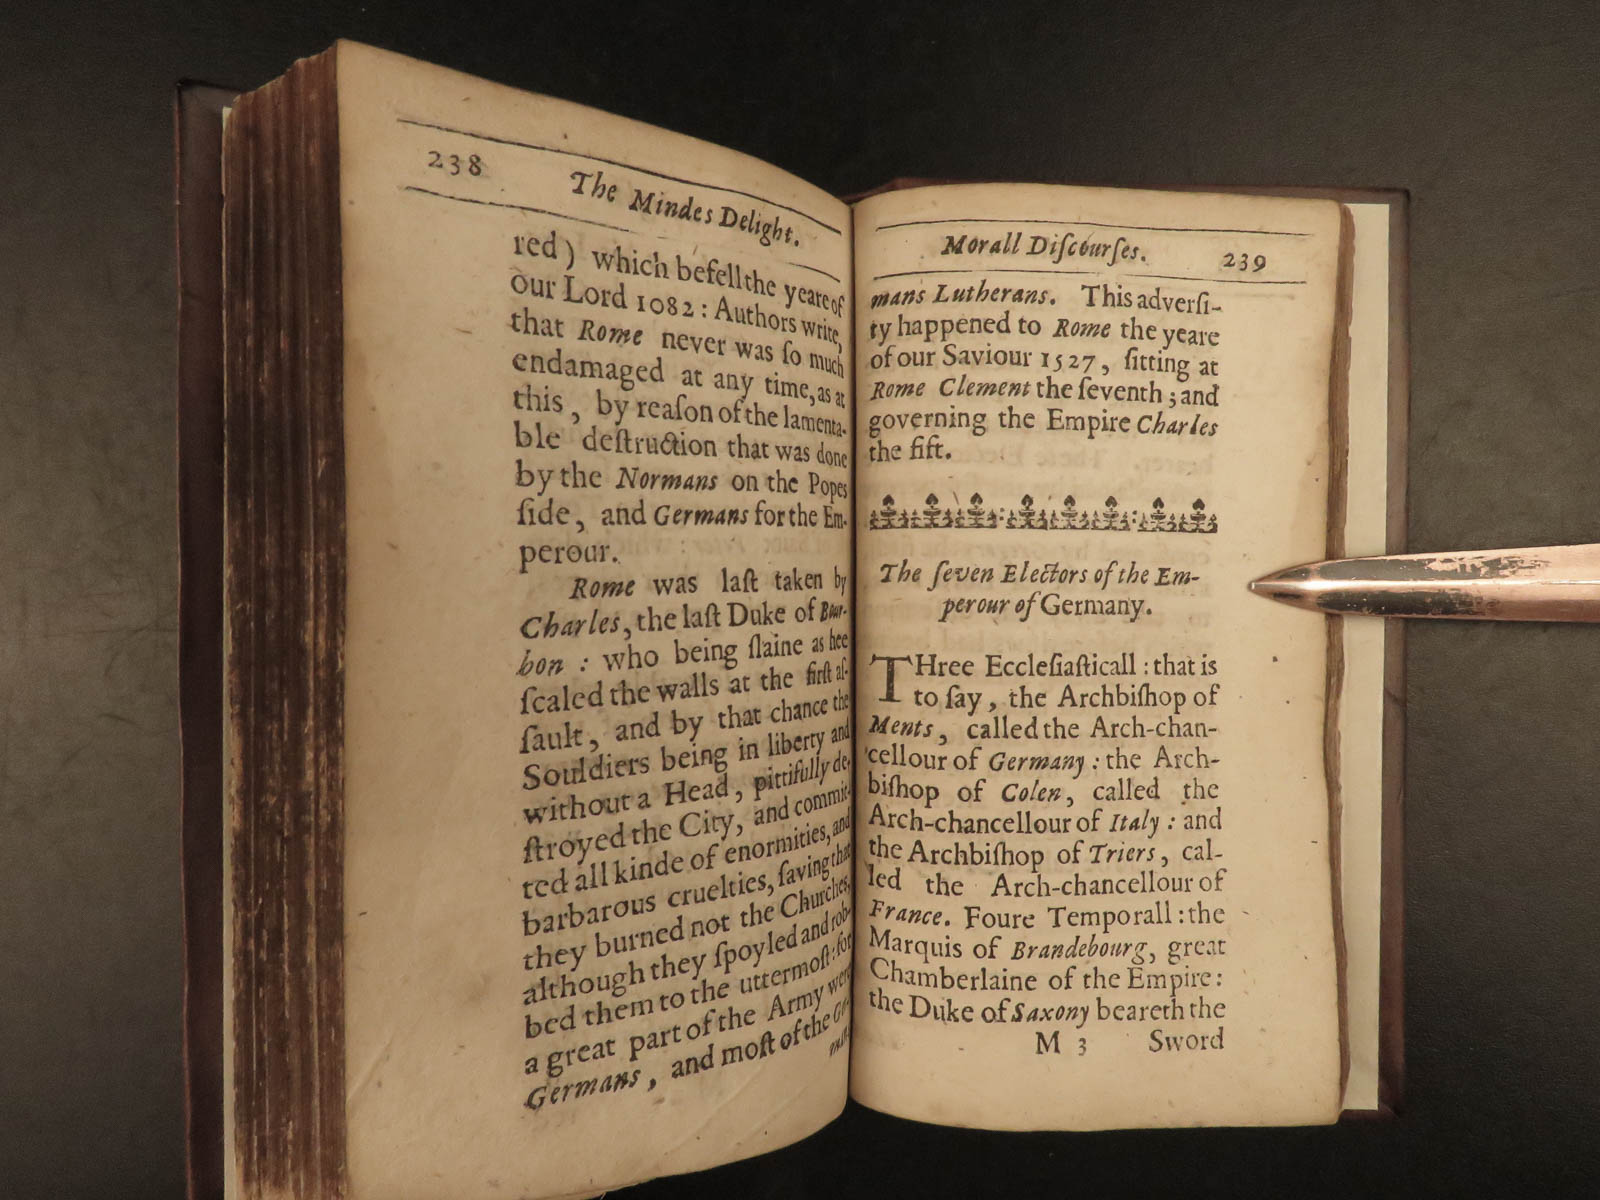 238 The Mindes Delight.
red) which befell the yeare of
our Lord 1082: Authors write,
that Rome never was ſo much
endamaged at any time, as at
this, by reaſon of the lamenta-
ble deſtruction that was done
by the Normans on the Popes
ſide, and Germans for the Em-
perour.
Rome was laſt taken by
Charles, the laſt Duke of Bour-
bon: who being ſlaine as hee
ſcaled the walls at the firſt aſ-
ſault, and by that chance the
Souldiers being in liberty and
without a Head, pittifully de-
ſtroyed the City, and commit-
ted all kinde of enormities, and
barbarous cruelties, ſaving that
they burned not the Churches,
although they ſpoyled and rob-
bed them to the uttermoſt: for
a great part of the Army were
Germans, and moſt of the Ger-
mans
Morall Diſcourſes. 239
mans Lutherans. This adverſi-
ty happened to Rome the yeare
of our Saviour 1527, ſitting at
Rome Clement the ſeventh; and
governing the Empire Charles
the fift.
The ſeven Electors of the Em-
perour of Germany.
THree Eccleſiaſticall: that is
to ſay, the Archbiſhop of
Ments, called the Arch-chan-
cellour of Germany: the Arch-
biſhop of Colen, called the
Arch-chancellour of Italy: and
the Archbiſhop of Triers, cal-
led the Arch-chancellour of
France. Foure Temporall: the
Marquis of Brandebourg, great
Chamberlaine of the Empire:
the Duke of Saxony beareth the
M 3 Sword